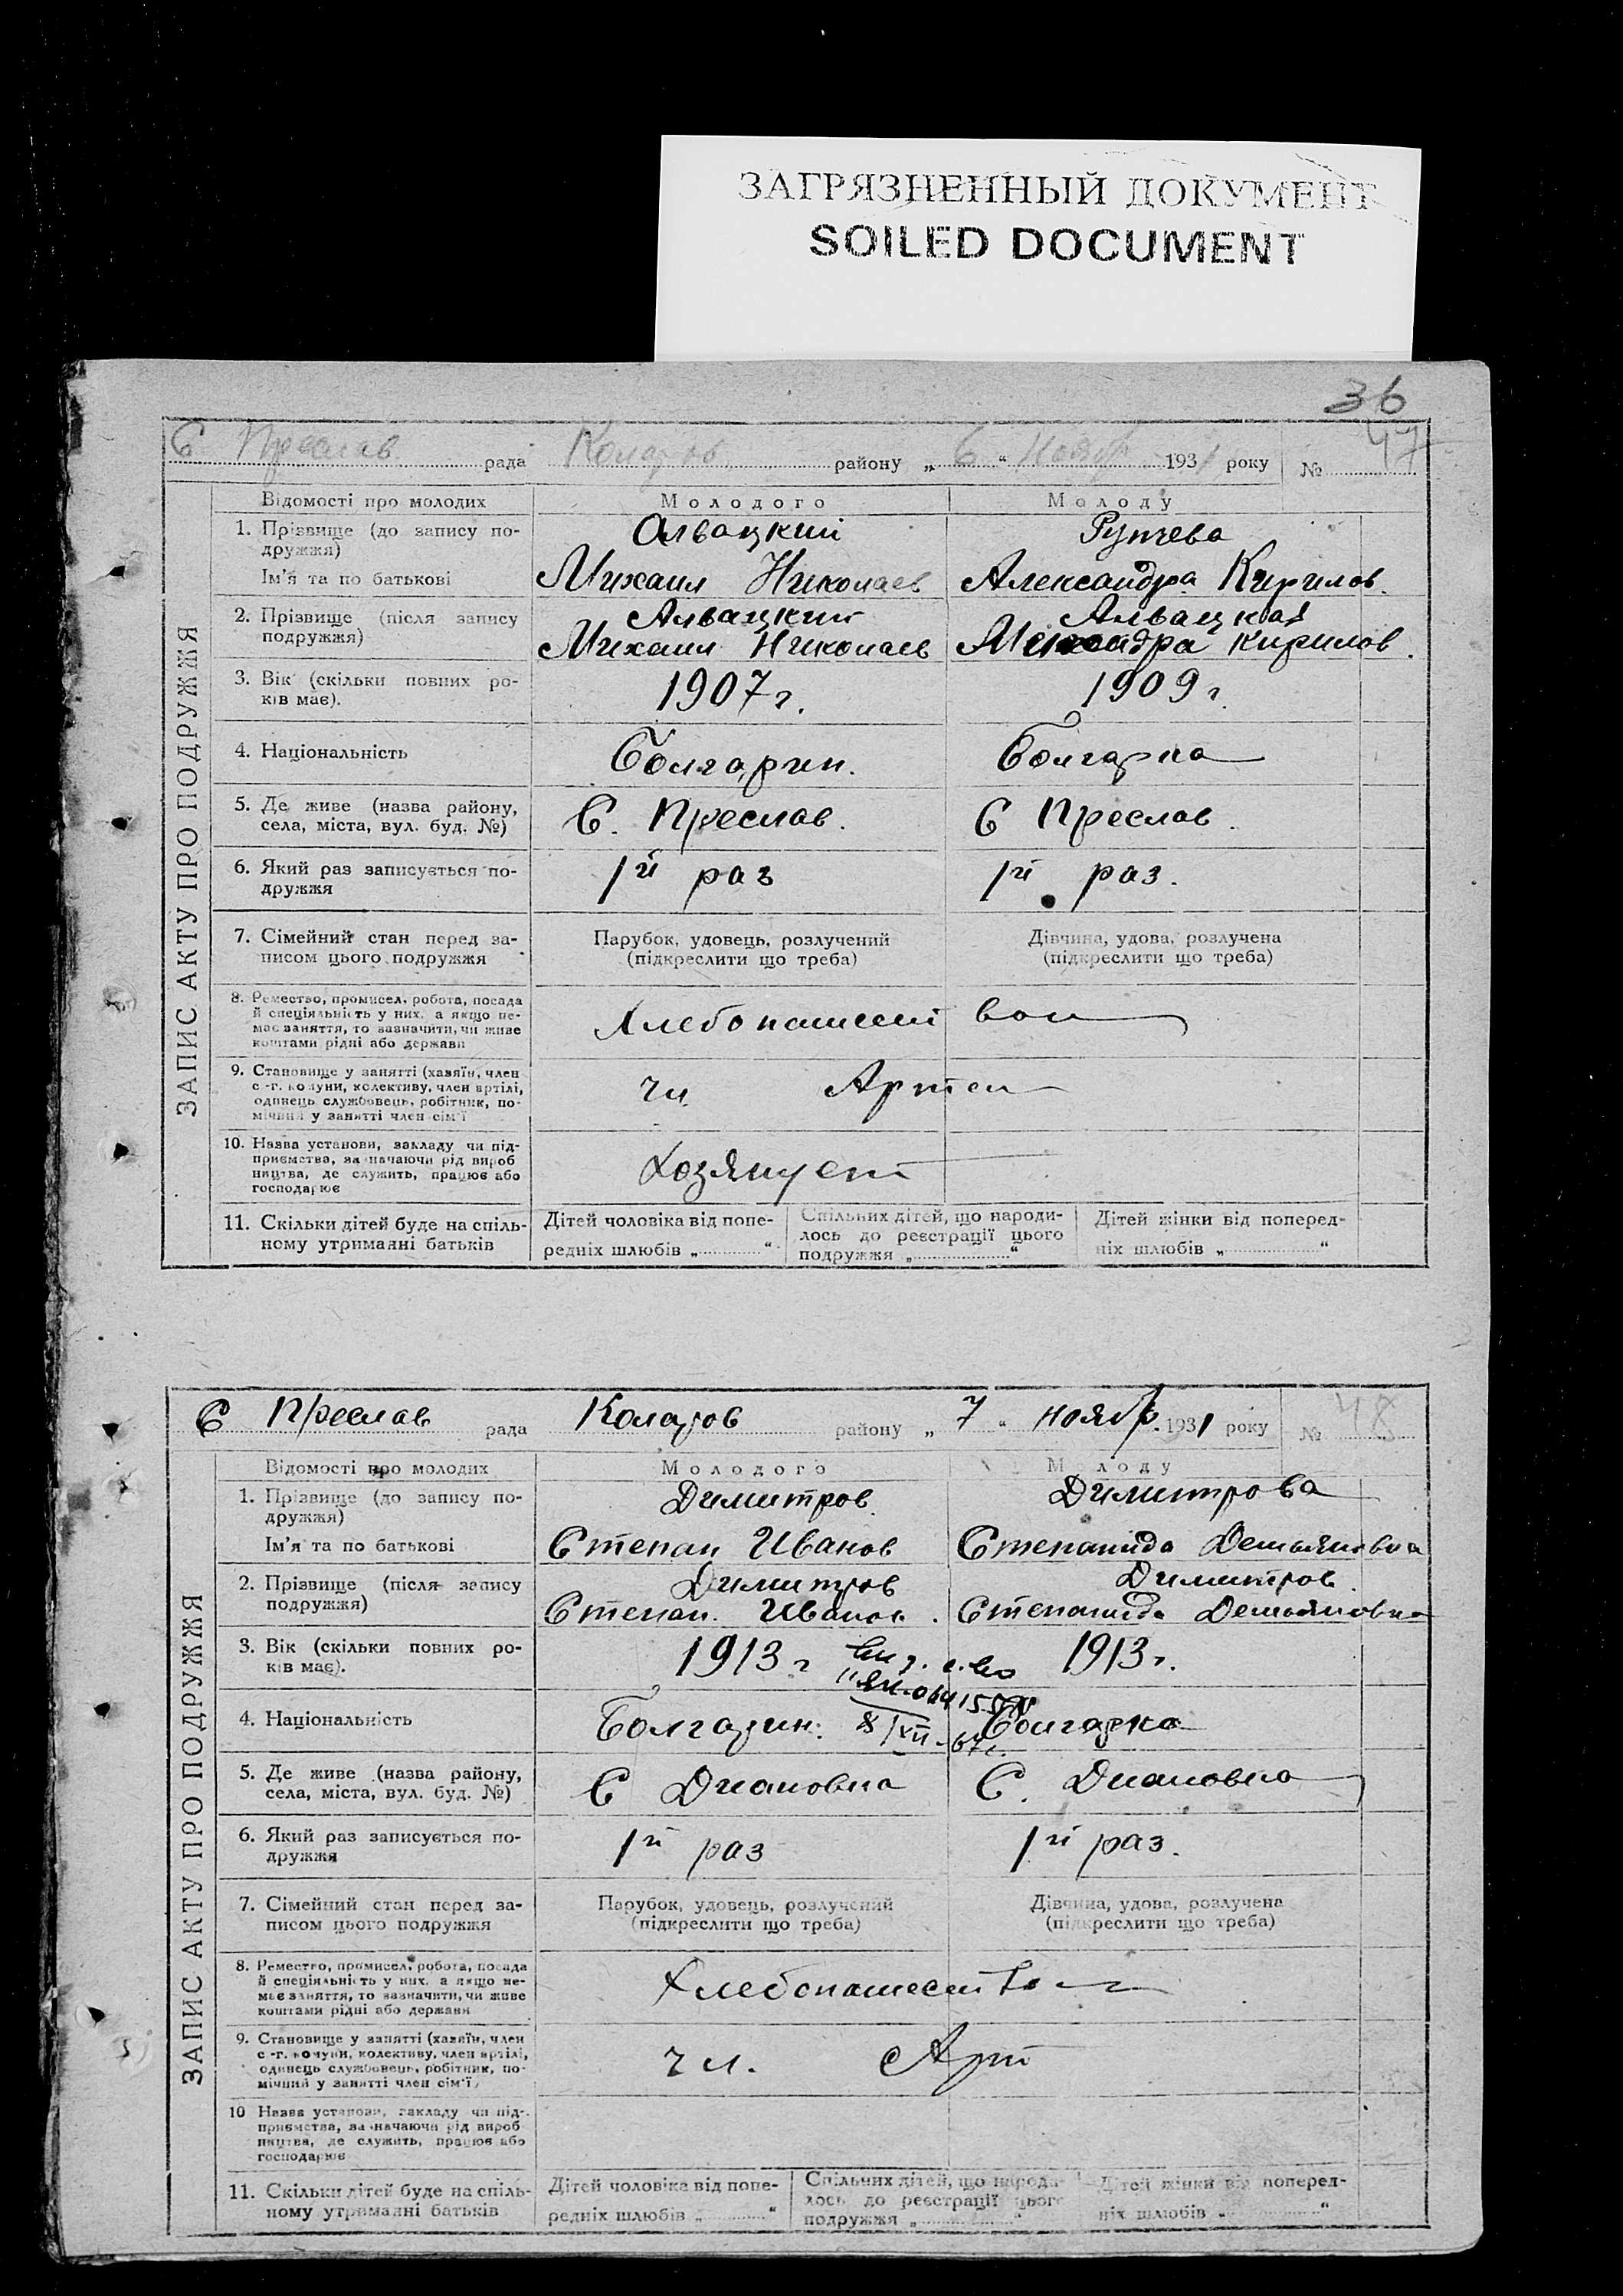 ЗАГРЯЗНЕННЫЙ ДОКУМЕНТ
SOILED DOCUMENT
36
С Преслав рада Коларов району „ 6 “ Ноябр 1931 року № 47
ЗАПИС АКТУ ПРО ПОДРУЖЖЯ
Відомості про молодих Молодого Молоду
1. Прізвище (до запису по- Алвацкий Рупчева
дружжя)
Ім’я та по батькові Михаил Николаев Александра Кирилов.
2. Прізвище (після запису Алвацкий Алвацкая
подружжя) Михаил Николаев Александра Кирилов.
3. Вік (скільки повних ро- 1907 г. 1909 г.
ків має).
4. Національність Болгарин. Болгарка
5. Де живе (назва району, С. Преслав. С Преслав.
села, міста, вул. буд. №)
6. Який раз записується по- 1й раз 1й раз.
дружжя
7. Сімейний стан перед за- Парубок, удовець, розлучений Дівчина, удова, розлучена
писом цього подружжя (підкреслити що треба) (підкреслити що треба)
8. Ремество, промисел, робота, посада
й спеціяльність у них, а якщо не- Хлебопашест вом
має заняття, то зазначити, чи живе
коштами рідні або держави
9. Становище у занятті (хазяїн, член
с.-г. комуни, колективу, член артілі, чл. Артел
одинець службовець, робітник, по-
мічний у занятті член сім’ї
10. Назва установи, закладу чи під-
приємства, зазначаючи рід вироб Хозянует
ництва, де служить, працює або
господарює
11. Скільки дітей буде на спіль- Дітей чоловіка від попе- Спільних дітей, що народи- Дітей жінки від поперед-
ному утриманні батьків редніх шлюбів „ “ лось до реєстрації цього ніх шлюбів „ “
подружжя „ “
С Преслав рада Коларов району „ 7 “ ноябр. 1931 року № 48
ЗАПИС АКТУ ПРО ПОДРУЖЖЯ
Відомості про молодих Молодого Молоду
1. Прізвище (до запису по- Димитров. Димитрова
дружжя)
Ім’я та по батькові Степан Иванов Степанида Демьяновна
2. Прізвище (після запису Димитров Димитров.
подружжя) Степан. Иванов. Степанида Демьяновна
3. Вік (скільки повних ро- 1913 г 1913 г.
ків має).
4. Національність Болгарин. 8/XII-67г. Болгарка
5. Де живе (назва району, С Диановка С. Диановка
села, міста, вул. буд. №)
6. Який раз записується по- 1й раз 1й раз.
дружжя
7. Сімейний стан перед за- Парубок, удовець, розлучений Дівчина, удова, розлучена
писом цього подружжя (підкреслити що треба) (підкреслити що треба)
8. Ремество, промисел, робота, посада
й спеціяльність у них, а якщо не- Хлебопашеством
має заняття, то зазначити, чи живе
коштами рідні або держави
9. Становище у занятті (хазяїн, член
с.-г. комуни, колективу, член артілі, чл. Арт
одинець службовець, робітник, по-
мічний у занятті член сім’ї
10 Назва установи, закладу чи під-
приємства, зазначаючи рід вироб
ництва, де служить, працює або
господарює
11. Скільки дітей буде на спіль- Дітей чоловіка від попе- Спільних дітей, що народи- Дітей жінки від поперед-
ному утриманні батьків редніх шлюбів „ “ лось до реєстрації цього ніх шлюбів „ “
подружжя „ “